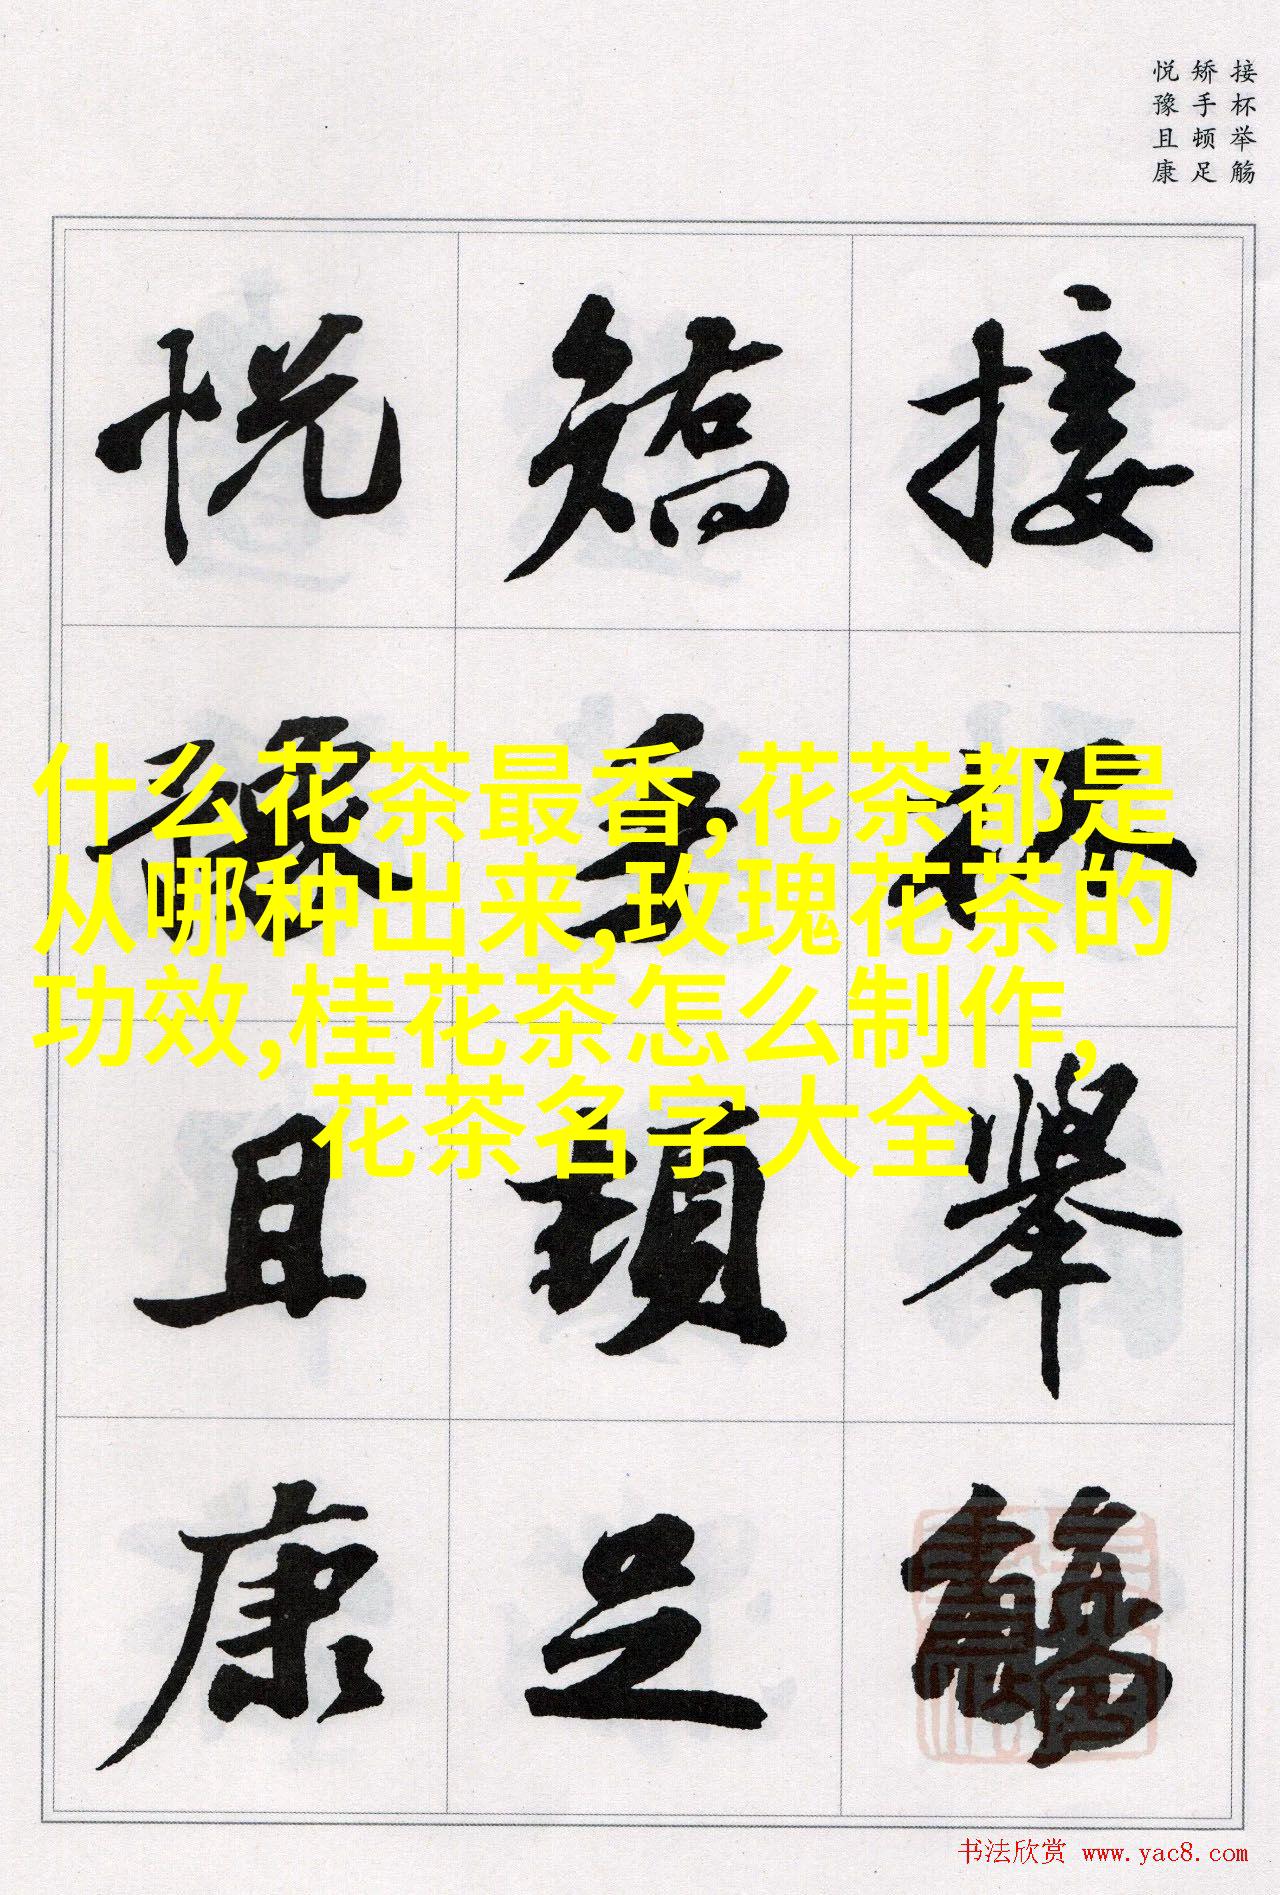 接杯举觞
矫手顿足
悦豫且康
接杯舉觴
矯手頓足
悦豫且康
什么花茶最香,花茶都是
从哪种出来,玫瑰花茶的
功效,桂花茶怎么制作,
花茶名字大全
书法欣赏 www.yac8.com